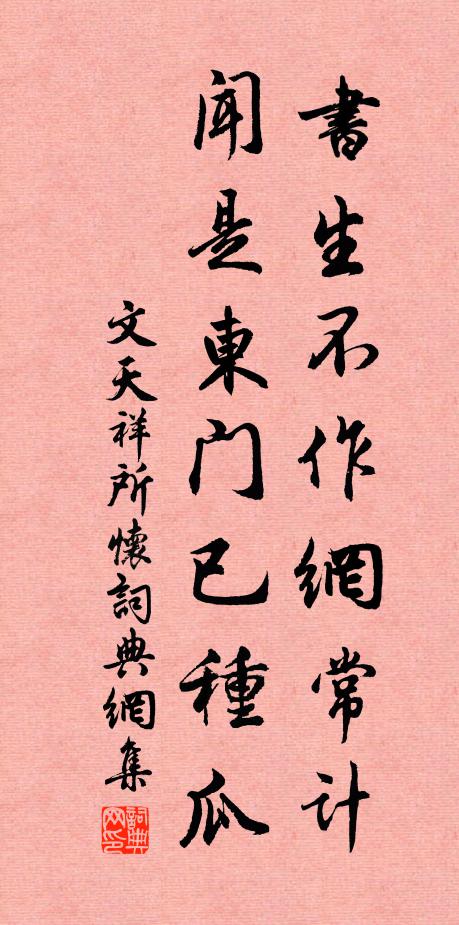 書生不作網常計
聞是東門已種瓜
文天祥所懷詞典網集
詞典网印